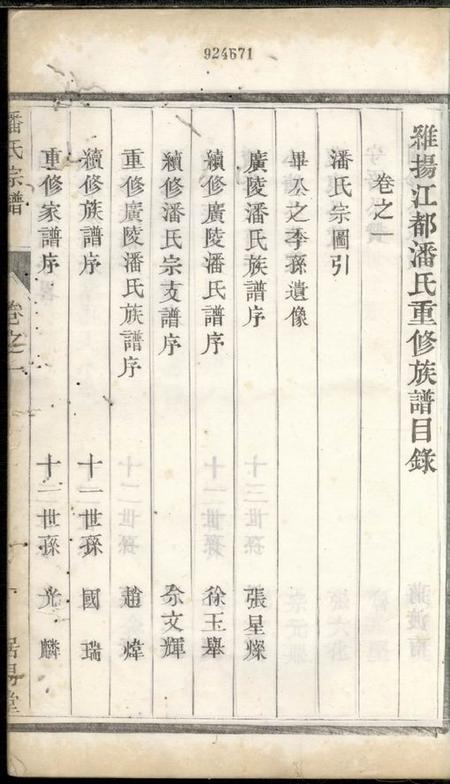 924671
維揚江都潘氏重修族譜目錄
卷之一
潘氏宗圖引
畢公之季孫遺像
廣陵潘氏族譜序 張星燦
續修廣陵潘氏譜序 徐玉舉
續修潘氏宗支譜序 佘文輝
重修廣陵潘氏族譜序 趙煒
續修族譜序 十一世孫 國瑞
重修家譜序 十二世孫 光麟
潘氏宗譜 卷之一